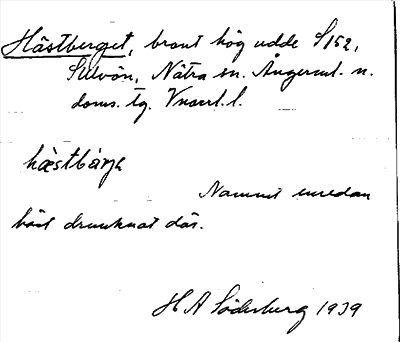 Hästberget, brant hög udde S 152,
Ulvön, Nätra sn. Ångerml. n.
doms. tg. Vnorrl. l.
hæstbärjə
Namnet emedan
häst drunknat där.
H A Söderberg 1939